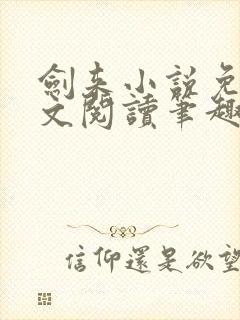 劍来小說免
文閱讀筆趣
信仰還是欲望